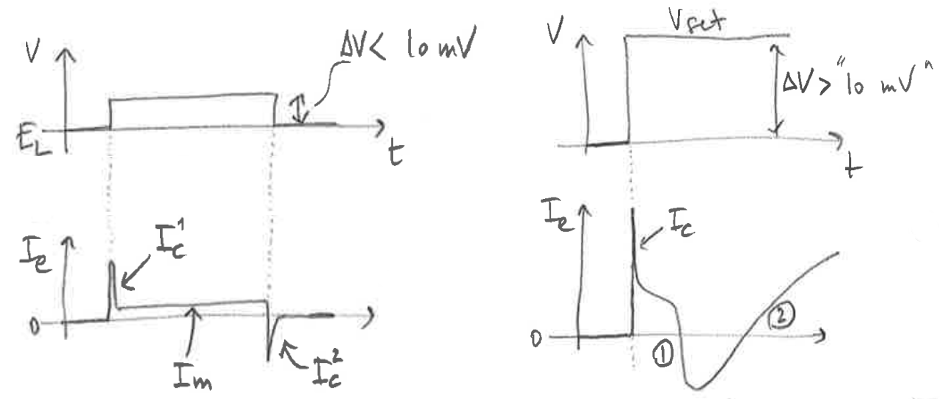 V
ΔV< 10 mV
E_L
t
I_e
I_c^1
0
I_m
I_c^2
V
V_set
ΔV>"10 mV"
t
I_e
I_c
0
①
②